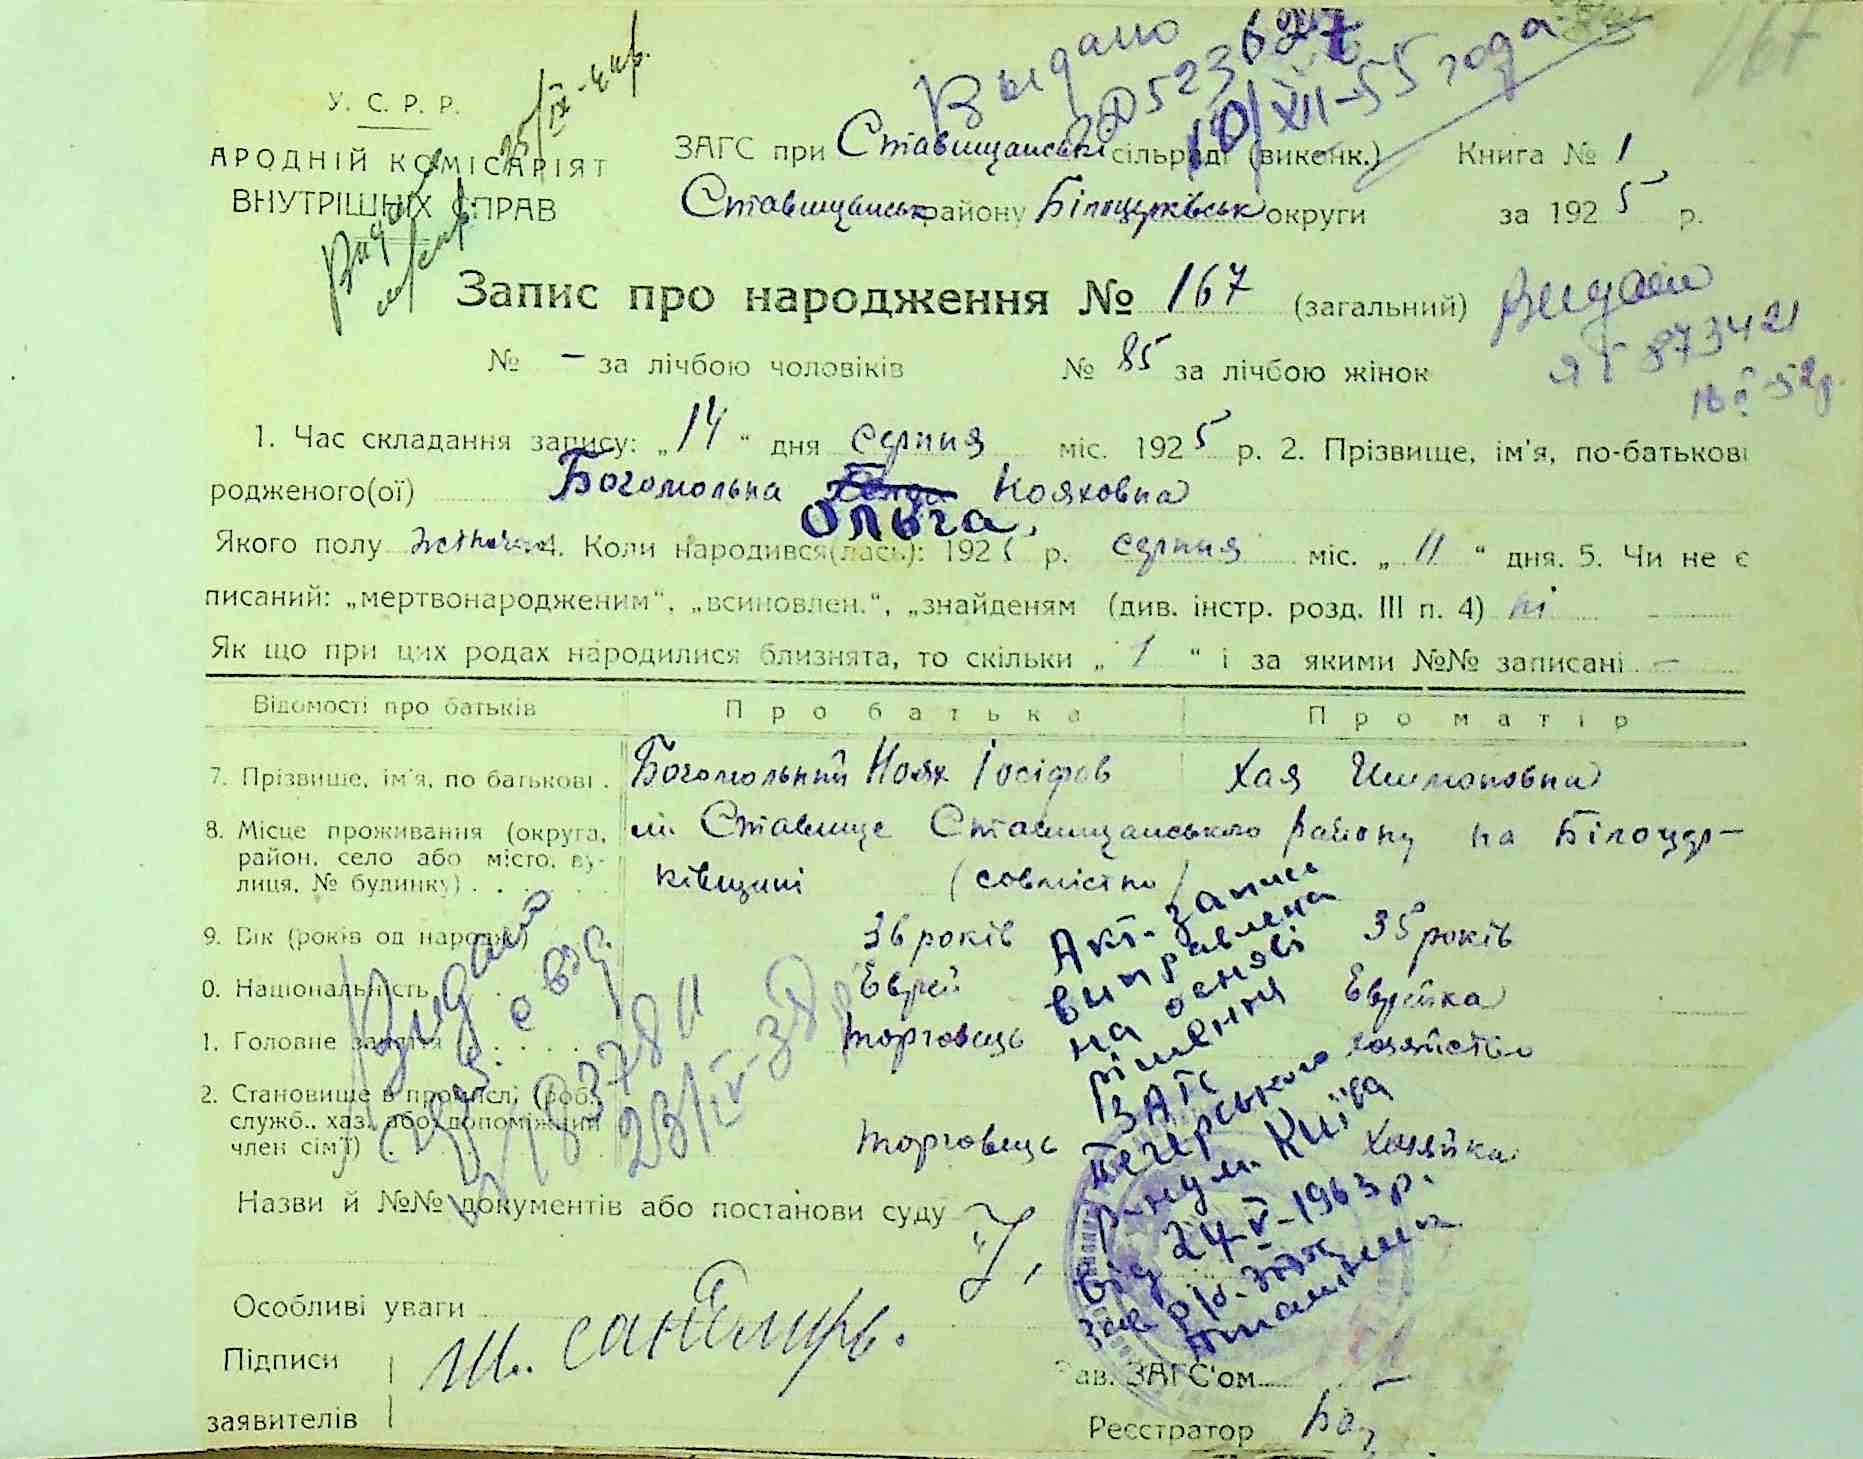 167
Выдано
523627
10/XII-55 года
У. С. Р. Р.
АРОДНІЙ КОМІСАРІЯТ
ВНУТРІШНІХ СПРАВ
25/IX-
ЗАГС при Ставищанські сільраді (виконк.) Книга № 1
Ставищанськ району Білоцерківськ округи за 1925 р.
Запис про народження № 167 (загальний)
№ – за лічбою чоловіків № 85 за лічбою жінок
873421
1. Час складання запису: „14“ дня серпня міс. 1925 р. 2. Прізвище, ім'я, по-батькові
родженого(ої) Богомольна Нояховна
Ольга.
Якого полу 4. Коли народився(лась): 1925 р. серпня міс. „11“ дня. 5. Чи не є
писаний: „мертвонародженим“, „всиновлен.“, „знайденям (див. інстр. розд. III п. 4) ні
Як що при цих родах народилися близнята, то скільки „1“ і за якими №№ записані –
Відомості про батьків Про батька Про матір
7. Прізвище, ім'я, по батькові . Богомольний Ноях Іосіфов Хая Шимоновна
8. Місце проживання (округа, м. Ставище Ставищанського району на Білоцер-
район, село або місто, ву-
лиця, № будинку) . . . . . ківщині (совмістно)
9. Вік (років од народж.) 36 років 35 років
0. Національність Еврей Еврейка
1. Головне заняття Торговець хозяйство
2. Становище в промислі (роб.,
служб., хаз. або допоміжний
член сім'ї) Торговець Хозяйка
Видано
23/IV-38
Акт. запись
виправлена
на основі
рішення
ЗАГС
Печерського
р-ну м. Київа
від 24-V-1963 р.
Зав р/в. ЗАГС
Назви й №№ документів або постанови суду
Особливі уваги
Підписи
заявителів
Зав. ЗАГС'ом
Реєстратор